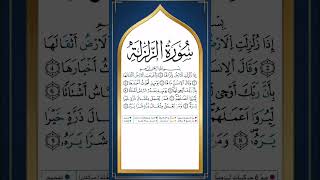 سُورَةُ الزَّلْزَلَةِ
بِسْمِ اللَّهِ الرَّحْمَٰنِ الرَّحِيمِ
إِذَا زُلْزِلَتِ الْأَرْضُ زِلْزَالَهَا ۝١ وَأَخْرَجَتِ الْأَرْضُ أَثْقَالَهَا
۝٢ وَقَالَ الْإِنسَٰنُ مَا لَهَا ۝٣ يَوْمَئِذٍ تُحَدِّثُ أَخْبَارَهَا
۝٤ بِأَنَّ رَبَّكَ أَوْحَىٰ لَهَا ۝٥ يَوْمَئِذٍ يَصْدُرُ النَّاسُ أَشْتَاتًا
لِّيُرَوْا أَعْمَٰلَهُمْ ۝٦ فَمَن يَعْمَلْ مِثْقَالَ ذَرَّةٍ خَيْرًا
يَرَهُ ۝٧ وَمَن يَعْمَلْ مِثْقَالَ ذَرَّةٍ شَرًّا يَرَهُ ۝٨